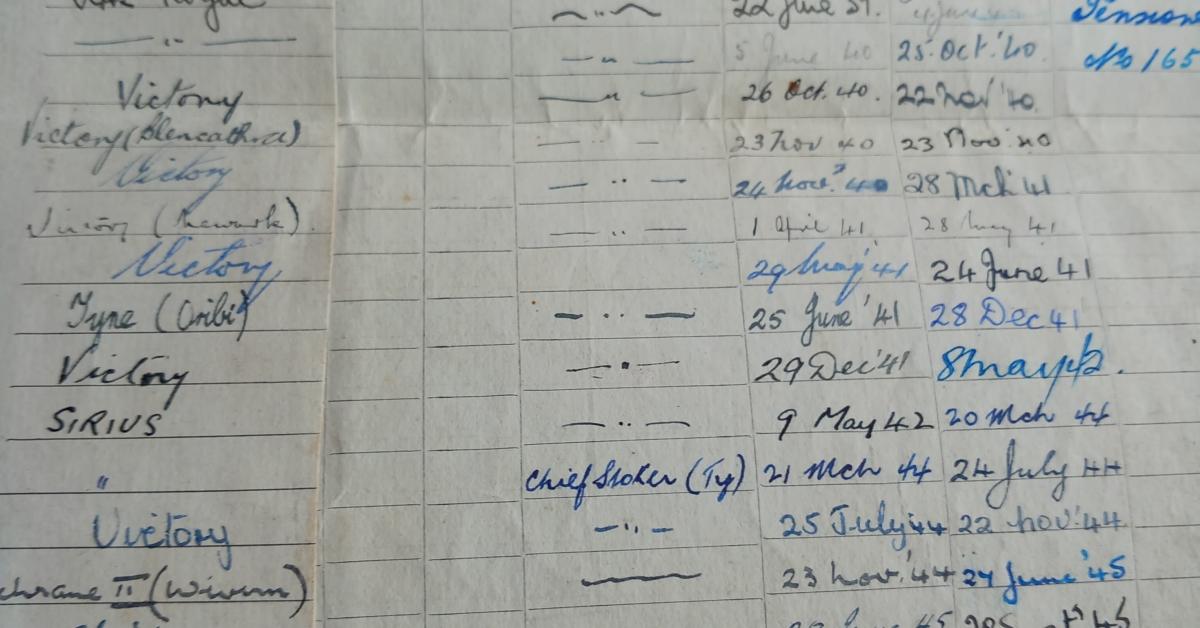 22 June 37.
— " — — " — 5 June 40 25. Oct. '40. Pension
Victory — " — 26 Oct. 40. 22 Nov '40. No 165
Victory (Blencathra) — " — 23 Nov 40 23 Nov. 40
Victory — " — 24 Nov. 40 28 Mch 41
Victory (Newark). — " — 1 April 41. 28 May 41
Victory 29 May '41 24 June 41
Tyne (Oribi) — " — 25 June '41 28 Dec 41
Victory — " — 29 Dec '41 8 May 42.
SIRIUS — " — 9 May 42 20 Mch 44
" Chief Stoker (Ty) 21 Mch 44 24 July 44
Victory — " — 25 July 44 22 Nov. '44
chrane II (Wivern) — 23 Nov. '44 24 June '45